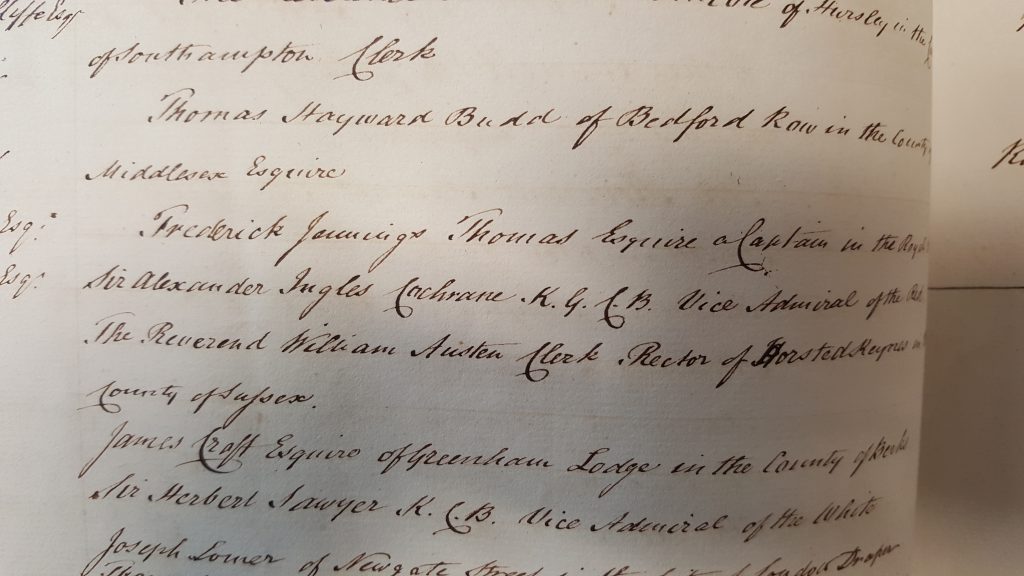 of Hursley in the
of Southampton Clerk
Thomas Hayward Budd of Bedford Row in the County
Middlesex Esquire
Frederick Jennings Thomas Esquire a Captain in the
Sir Alexander Ingles Cochrane K. G. C. B. Vice Admiral of the Red
The Reverend William Austen Clerk Rector of Horsted Keynes in
County of Sussex.
James Croft Esquire of Greenham Lodge in the County of Berks
Sir Herbert Sawyer K. C. B. Vice Admiral of the White
Joseph Lomer of Newgate Street in the City of London Draper
Esqr.
Esqr.